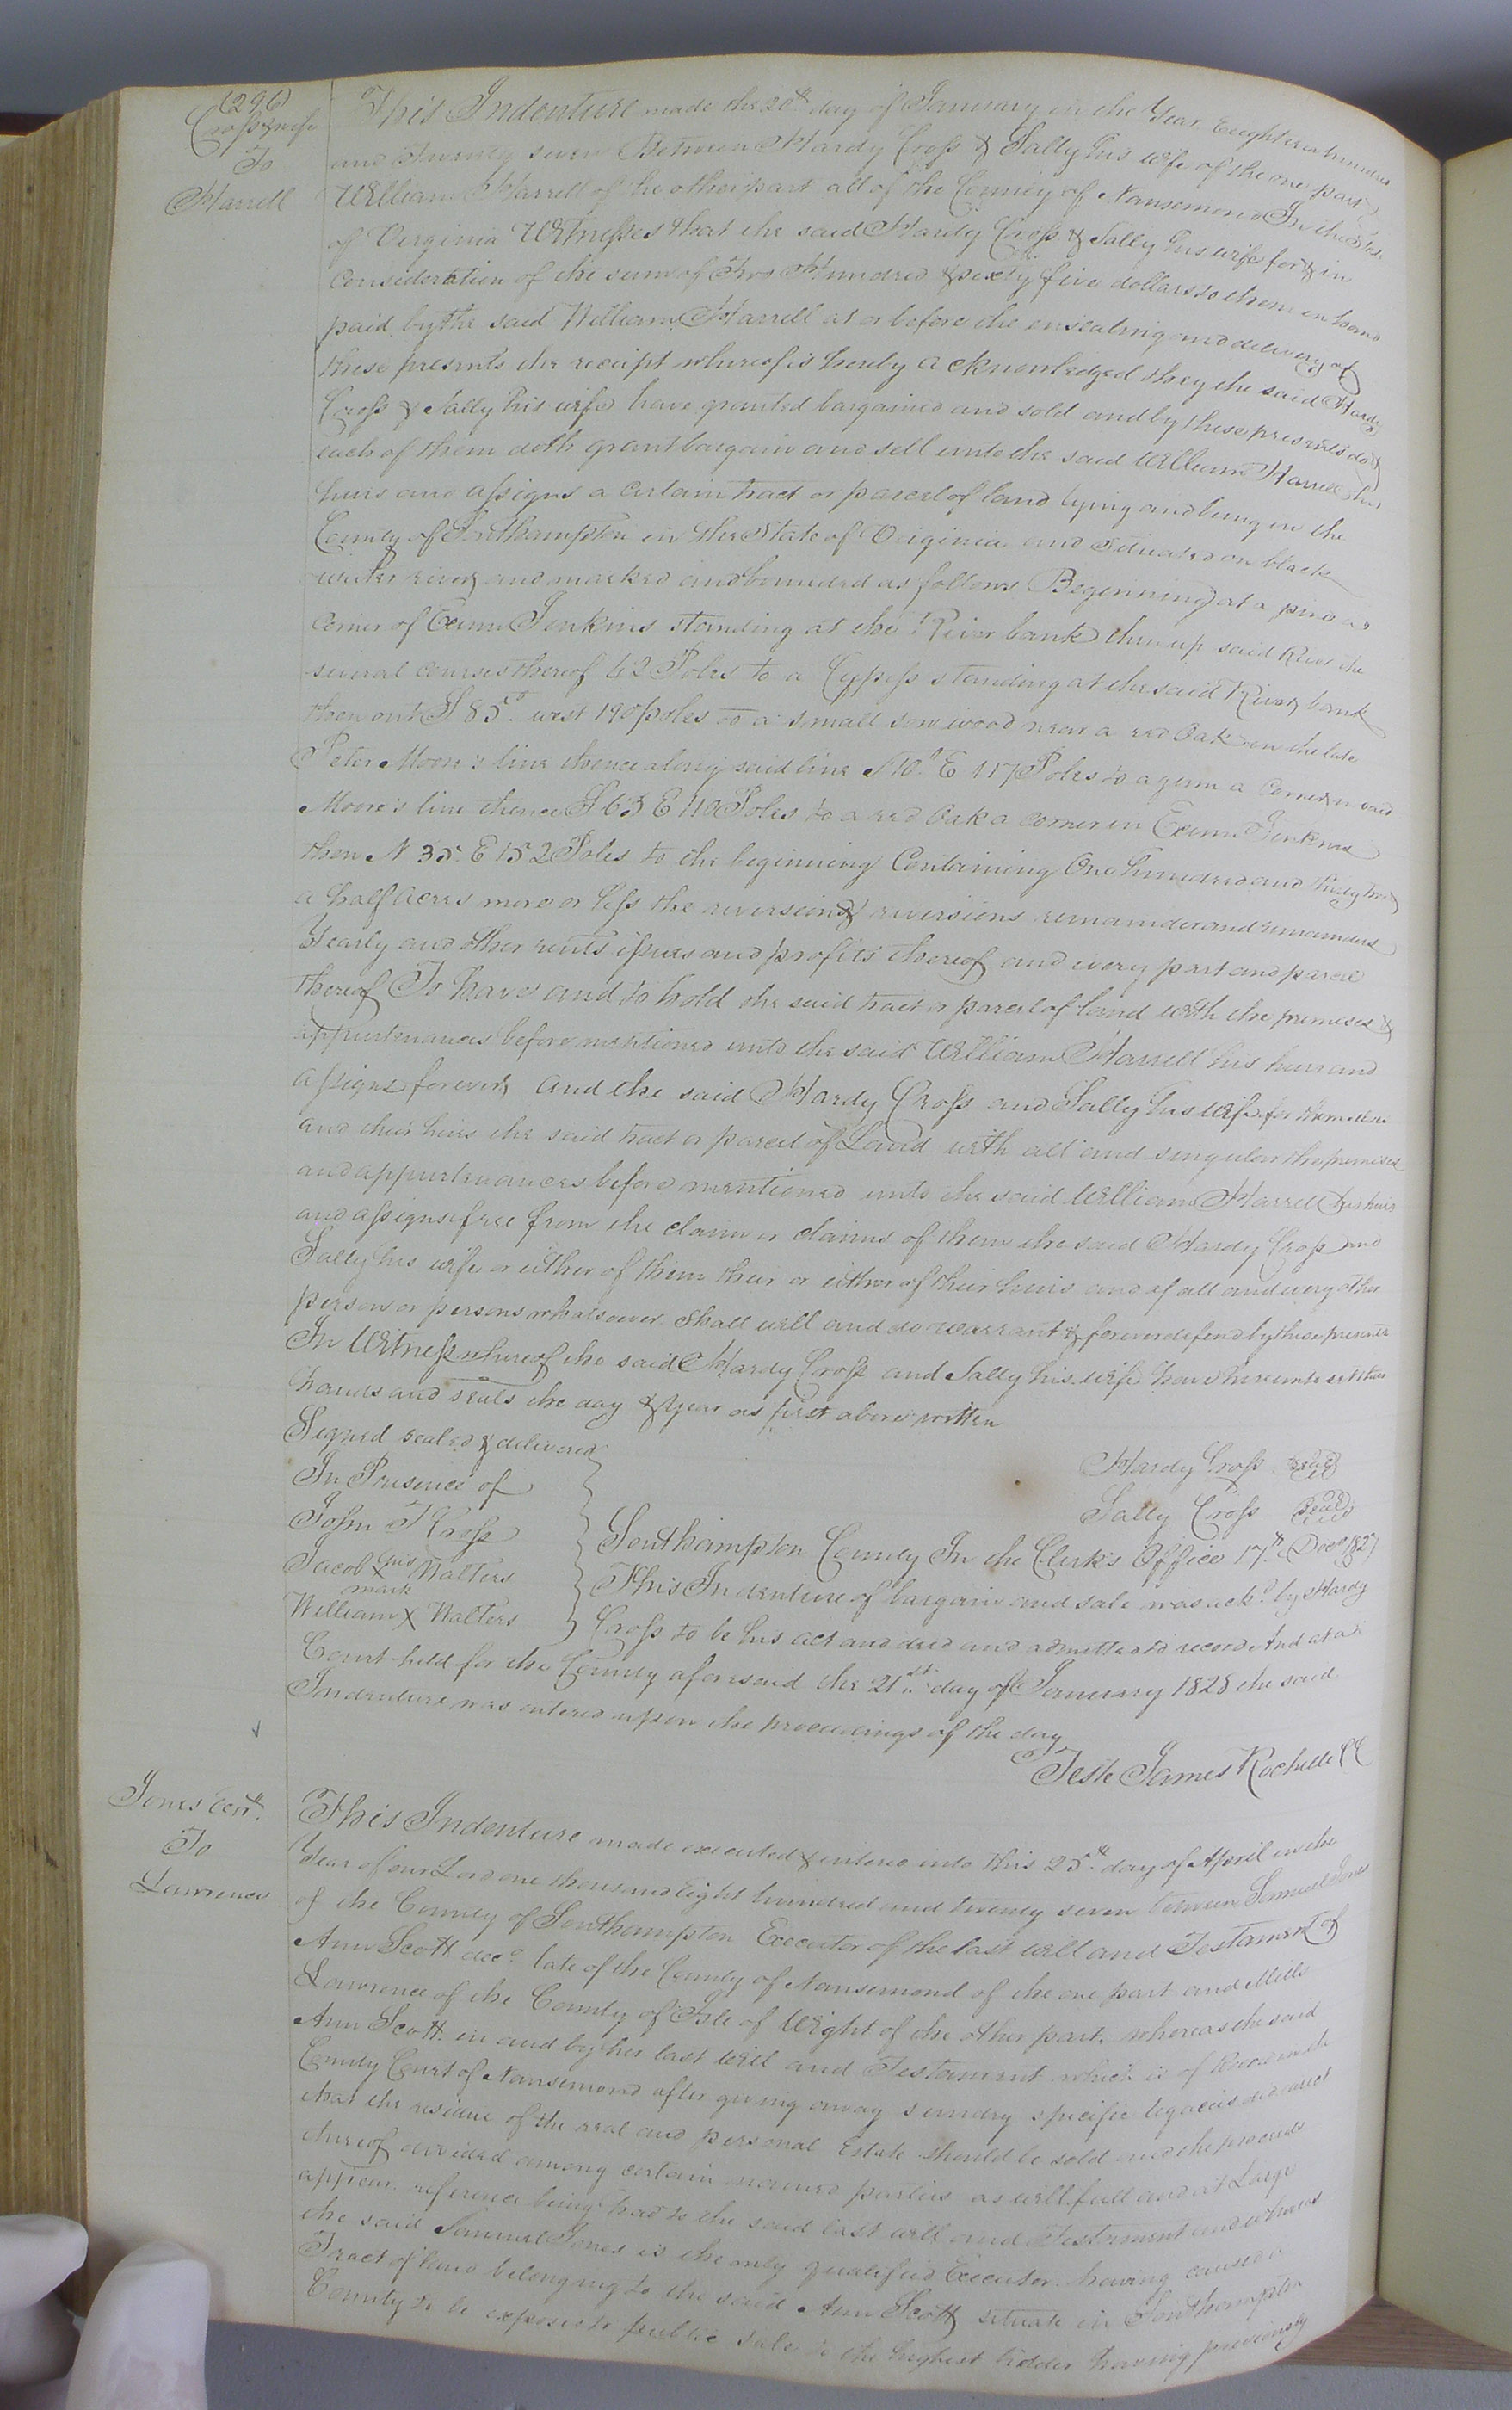 (296)
Cross & wife
To
Harrell
This Indenture made the 20th day of January in the Year Eighteen hundred
and Twenty seven Between Hardy Cross & Sally his wife of the one part &
William Harrell of the other part all of the County of Nansemond In the State
of Virginia Witnesses that the said Hardy Cross & Sally his wife for & in
Consideration of the sum of Two Hundred & sixty five dollars to them in hand
paid by the said William Harrell at or before the ensealing and delivery of
these presents the receipt whereof is hereby acknowledged they the said Hardy
Cross & Sally his wife have granted bargained and sold and by these presents do &
each of them doth grant bargain and sell unto the said William Harrell his
heirs and assigns a certain tract or parcel of land lying and being in the
County of Southampton in the State of Virginia and situated on black
water river and marked and bounded as follows Beginning at a pine a
Corner of Exum Jenkins standing at the River bank then up said River the
several courses thereof 42 Poles to a Cypress standing at the said River bank
then out S 85° west 190 poles to a small sow wood near a red Oak in the late
Peter Moore's line thence along said line S 10° E 117 Poles to a gum a Corner in said
Moore's line thence S 63 E 110 Poles to a red Oak a corner in Exum Jenkins
then N 35° E 152 Poles to the beginning Containing One hundred and thirty two &
a half acres more or less the reversion & reversions remainder and remainders
Yearly and other rents issues and profits thereof and every part and parcel
thereof To have and to hold the said tract or parcel of land with the premises &
appurtenances before mentioned unto the said William Harrell his heirs and
assigns forever and the said Hardy Cross and Sally his wife for themselves
and their heirs the said tract or parcel of Land with all and singular the premises
and appurtenances before mentioned unto the said William Harrell his heirs
and assigns free from the claim or claims of them the said Hardy Cross and
Sally his wife or either of them their or either of their heirs and of all and every other
person or persons whatsoever Shall will and do warrant & forever defend by these presents
In Witness whereof the said Hardy Cross and Sally his wife have hereunto set their
hands and seals the day & year as first above written
Signed sealed & delivered
In Presence of
John T Cross
Jacob his X Walters
mark
William X Walters
Hardy Cross Seal
Sally Cross Seal
Southampton County In the Clerk's Office 17th Decr 1827
This Indenture of bargain and sale was ackd by Hardy
Cross to be his act and deed and admitted to record And at a
Court held for the County aforesaid the 21st day of January 1828 the said
Indenture was entered upon the proceedings of the day
Teste James Rochelle CC
Jones Exr.
To
Lawrence
This Indenture made executed & entered into this 25th day of April in the
Year of our Lord one thousand eight hundred and twenty seven between Samuel Jones
of the County of Southampton Executor of the last will and Testament of
Ann Scott decd late of the County of Nansemond of the one part and Mills
Lawrence of the County of Isle of Wight of the other part. whereas the said
Ann Scott in and by her last Will and Testament which is of Record in the
County Court of Nansemond after giving away sundry specific legacies did direct
that the residue of the real and personal Estate should be sold and the proceeds
thereof divided among certain named parties as will full and at Large
appear reference being had to the said last will and Testament and whereas
the said Samuel Jones is the only qualified Executor having caused a
Tract of land belonging to the said Ann Scott situate in Southampton
County to be exposed to public sale to the highest bidder having previously